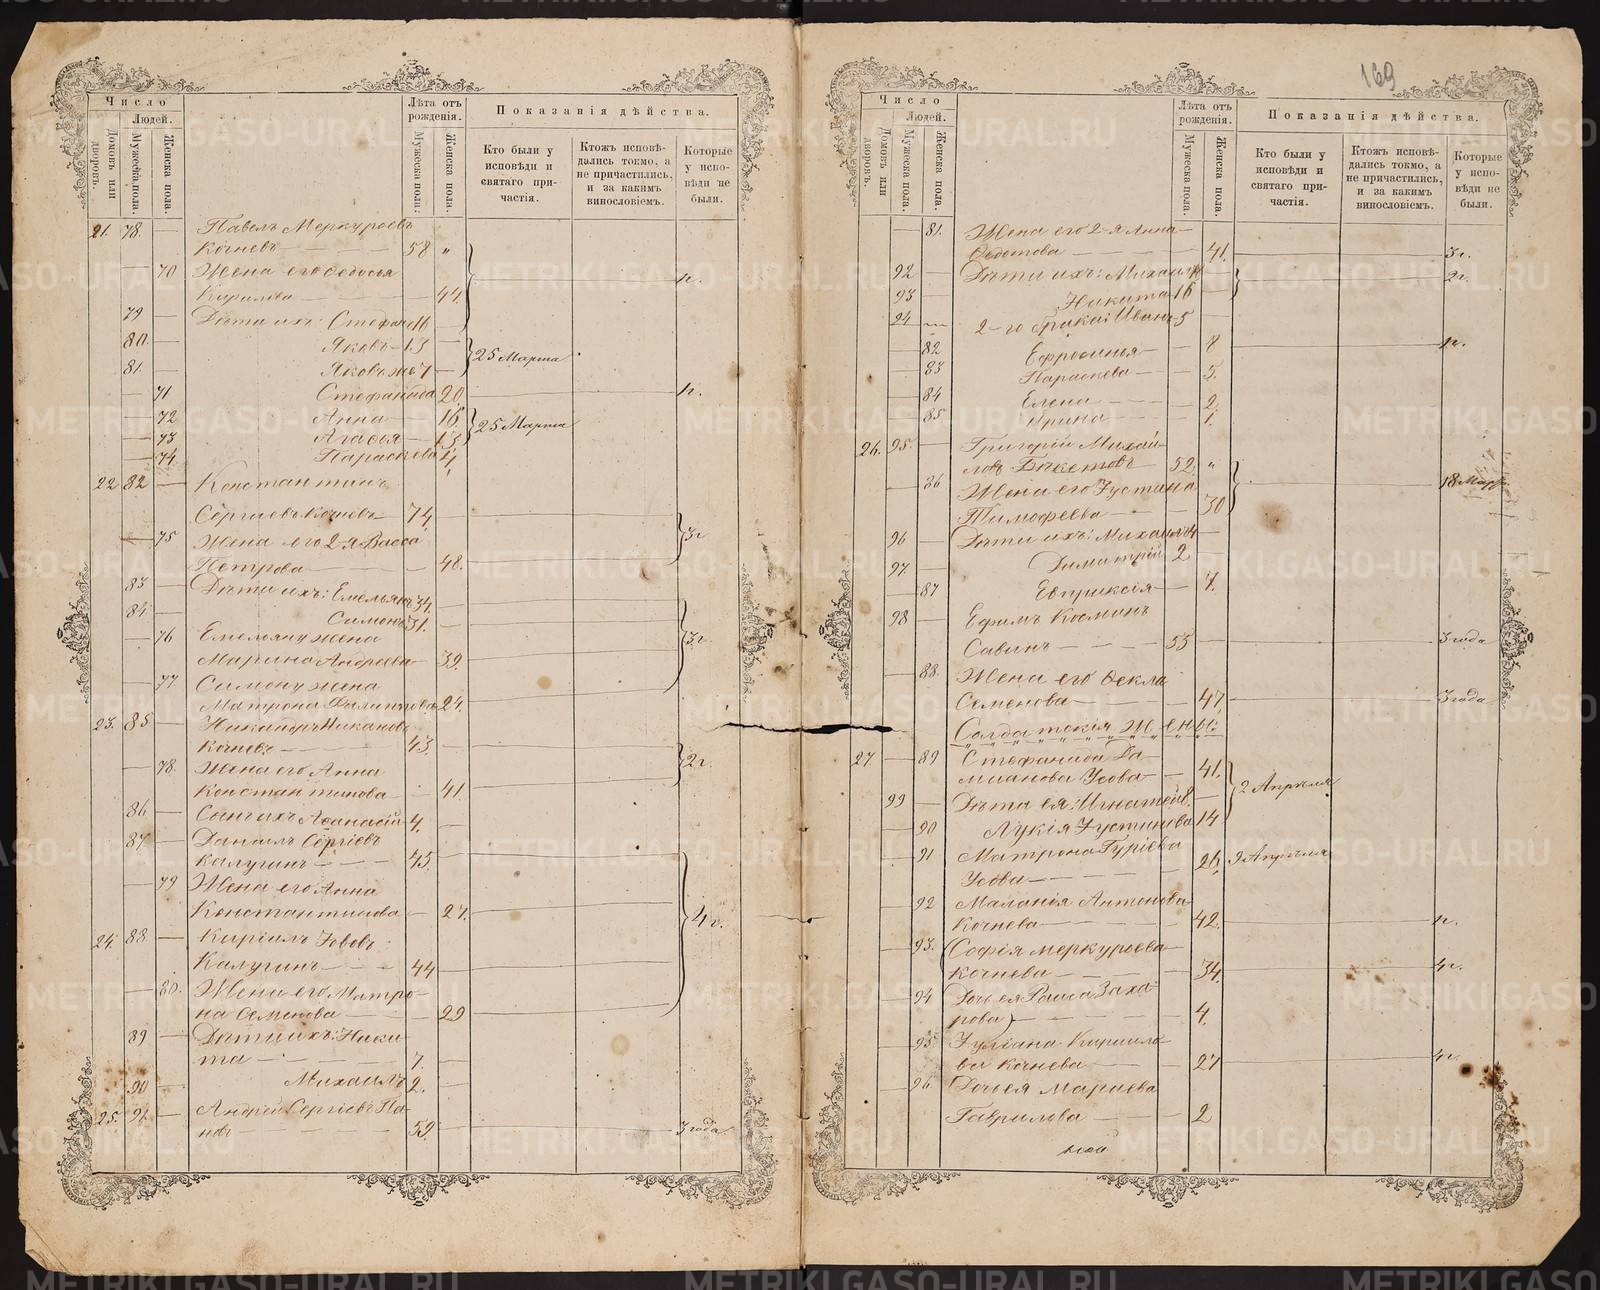 Число
Людей.
Домовъ или дворовъ.
Мужеска пола.
Женска пола.
Лѣта отъ рожденія.
Мужеска пола.
Женска пола.
Показанія дѣйства.
Кто были у исповѣди и святаго причастія.
Ктожъ исповѣдались токмо, а не причастились, и за какимъ винословіемъ.
Которые у исповѣди не были.
21. 78. — Павелъ Меркурьевъ
Кочневъ — 58 "
70 Жена его Ѳедосья
Кирилова — 44. п.
79 — Дѣти ихъ: Стефанъ 16 —
80. — Яковъ — 13 —
81. — Яковъ же 7 — 25 Марта
— 71 Стефанида 20. п.
— 72 Анна — 16.
— 73 Агаѳья — 13. 25 Марта
— 74. Параскева 4.
22 82 — Константинъ
Сергіевъ Кочневъ — 74
— 75 Жена его 2-я Васса 3 г.
Петрова — 48.
83 — Дѣти ихъ: Емельянъ 34. —
84 — Симонъ 31. —
— 76 Емельяну жена 3 г.
Марина Андреева — 39.
— 77 Симону жена
Матрона Филипова 24.
23. 85 — Никандръ Никановъ
Кочневъ — 43. —
— 78. Жена его Анна 2 г.
Константинова — 41.
86 — Сынъ ихъ Аѳанасій 4. —
87 — Даніилъ Сергіевъ
Калугинъ — 45.
— 79 Жена его Анна
Константинова — 27.
24. 88. — Кирилъ Іововъ 4 г.
Калугинъ — 44
— 80. Жена его Матро-
на Семенова — 29
89 — Дѣти ихъ: Ники-
та — 7. —
90 — Михаилъ 2. —
25. 91. — Андрей Сергіевъ Па-
новъ — 59. 3 года
169
Число
Людей.
Домовъ или дворовъ.
Мужеска пола.
Женска пола.
Лѣта отъ рожденія.
Мужеска пола.
Женска пола.
Показанія дѣйства.
Кто были у исповѣди и святаго причастія.
Ктожъ исповѣдались токмо, а не причастились, и за какимъ винословіемъ.
Которые у исповѣди не были.
— 81. Жена его 2-я Анна
Ѳедотова — 41. 3 г.
92 — Дѣти ихъ: Михаилъ 2 г.
93 — Никита 16 —
94 — 2-го брака: Иванъ 5
— 82 Ефросинья — 8 п.
— 83 Параскева — 5.
— 84 Елена — 2.
— 85 Ирина — 1.
26. 95. — Григорій Михай-
ловъ Бекетовъ — 52. "
— 86 Жена его Іустина 18 Мар.
Тимофеева — 30
96 — Дѣти ихъ: Михаилъ 4 —
97. — Димитрій 2
— 87 Евпраксія — 7.
98 — Ефимъ Косминъ
Савинъ — 55 3 года
— 88. Жена его Ѳекла
Семенова — 47. 3 года
Солдатскія Жены:
27. — 89 Стефанида Да-
мианова Усова — 41.
99 — Дѣти ея: Игнатей 8. — 2 Апрѣля
— 90 Лукія Іустинова 14
— 91 Матрона Гуріева
Усова — 26. 2 Апрѣля
— 92 Маланія Антонова
Кочнева — 42. п.
— 93. (Софія Меркурьева
Кочнева — 34. 4 г.
— 94 Дочь ея Раиса Заха-
рова) — 4.
— 95 Іуліана Кирило-
ва Кочнева — 27 4 г.
— 96 Дочь ея Мариѳва
Гаврилова — 2